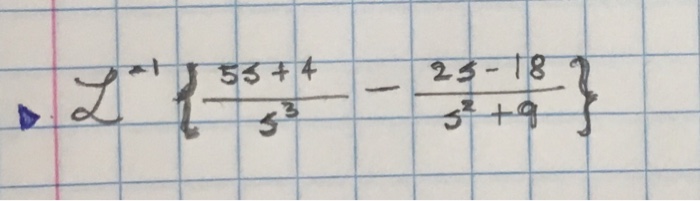 ℒ⁻¹ { (5s+4)/s³ − (2s-18)/(s²+9) }